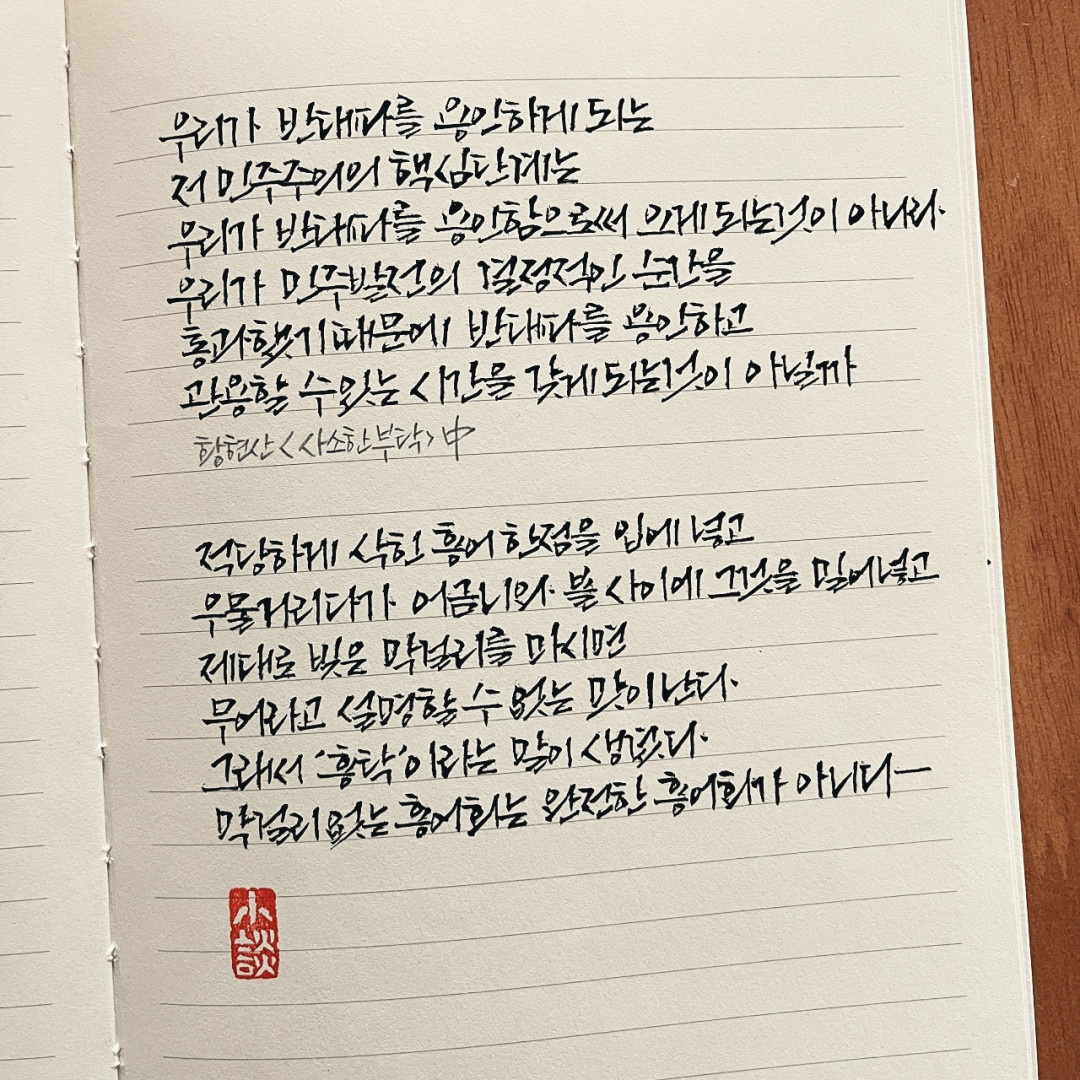 우리가 반대파를 용인하게 되는
저 민주주의의 핵심단계는
우리가 반대파를 용인함으로써 오게 되는것이 아니라.
우리가 민주발전의 결정적인 순간을
통과했기때문에 반대파를 용인하고
관용할 수있는 시간을 갖게 되는것이 아닐까
황현산 <사소한 부탁> 中
적당하게 삭힌 홍어 한점을 입에 넣고
우물거리다가 어금니와 볼 사이에 그것을 밀어넣고
제대로 빚은 막걸리를 마시면
무어라고 설명할 수 없는 맛이 난다.
그래서 '홍탁'이라는 말이 생겼다.
막걸리 없는 홍어회는 완전한 홍어회가 아니다—
小
談